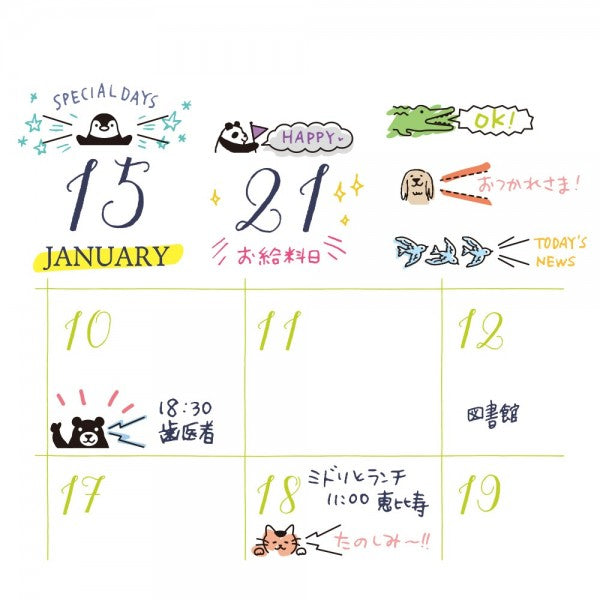 SPECIAL DAYS
15
JANUARY
HAPPY
21
お給料日
OK!
おつかれさま!
TODAY'S
NEWS
10
18:30
歯医者
11
12
図書館
17
18
ミドリとランチ
11:00 恵比寿
たのしみ〜!!
19